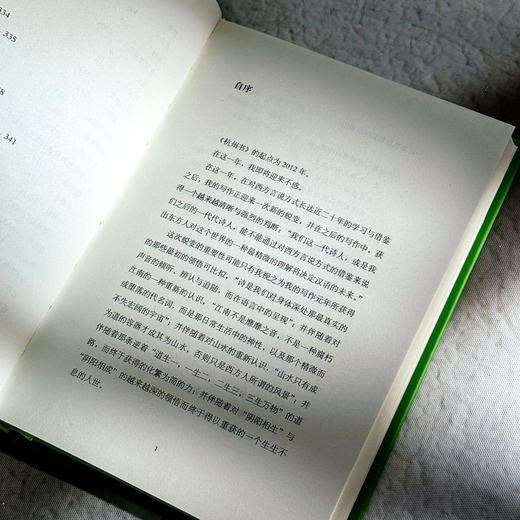 334
335
8
341
自序
《杭州书》的起点为2012年。
在这一年，我即将迎来不惑。
在这一年，在对西方言说方式长达近二十年的学习与借鉴
之后，我的写作正迎来一次新的蜕变，并在之后的写作中，获
得一个越来越清晰与强烈的判断，“我们这一代诗人，或是我
们之后的一代代诗人，能不能通过对西方言说方式的借鉴来说
出东方人对这个世界的一种最精微的理解将决定汉语的未来。”
这次蜕变的重要性可能只有我视之为我的写作元年所获得
的那些最初的领悟可比拟，“诗是我们对身体深处那最真实的
声音的倾听、辨认与追随，而在语言中的呈现”；并伴随着对
江南的一种重新的认识，“江南不是靡靡之音，不是一种腐朽
或堕落的代名词，而是那日常生活中的神性，以及那个精微而
不失宏阔的宇宙”；并伴随着对山水的重新认识，“山水只有成
为道的容器才成其为山水，否则只是西方人所谓的风景”；并
伴随着那条逆着“道生一，一生二，二生三，三生万物”的道
路，而终于获得的化繁为简的力；并伴随着对“阴阳相生”与
“阴阳相成”的越来越深的领悟而终于得以重获的一个生生不
息的人世。
1